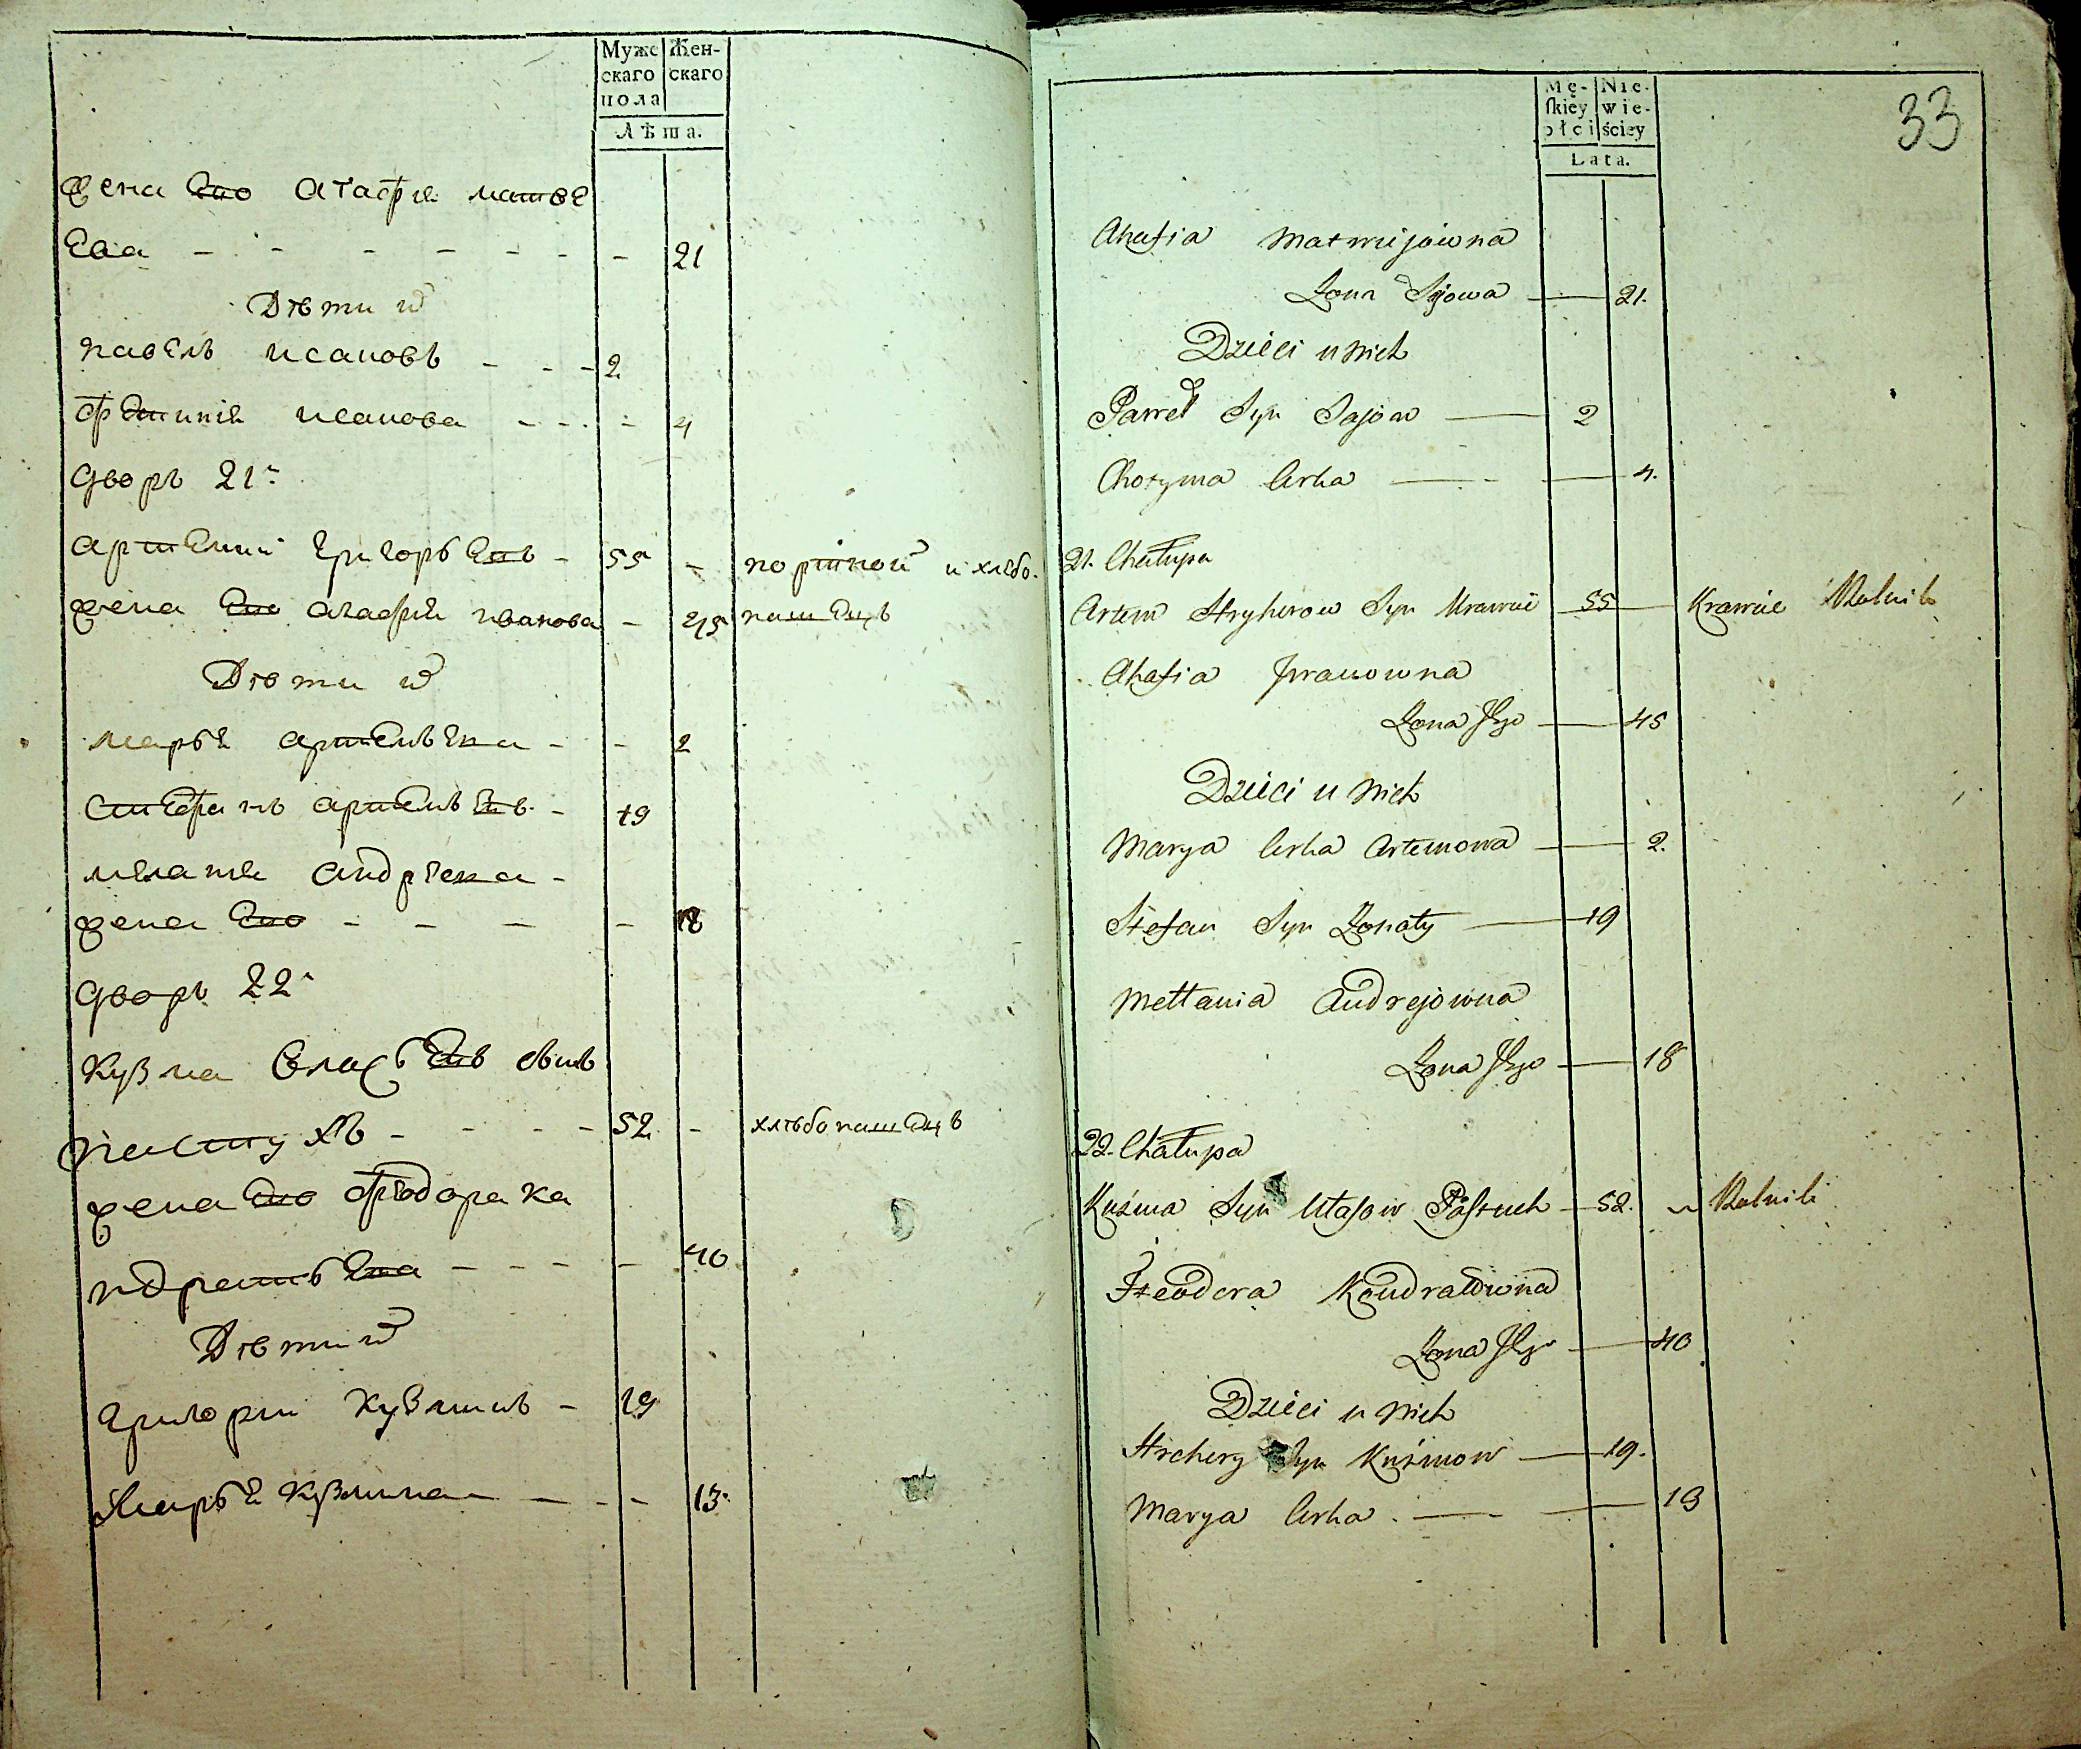 Муже Жен-
скаго скаго
пола
Лѣта.
жена Ево Агафия матве
Ева - - - - - - - 21
Дѣти их
павелъ исаковъ - - - 2
фетиния исакова - - - - 4
дворъ 21й
артемий григорьевъ - 55 - портной и хлѣбо.
жена Ево агафия иванова - 45 пашецъ
Дѣти их
марья артемьева - - 2
стефанъ артемьевъ - 19
мелания андреева -
жена Ево - - - - 18
дворъ 22й
кузма власьевъ
пастухъ - - - - 52 - хлѣбопашецъ
жена Ево феодора ко
ндратьева - - - - 40
Дѣти их
григории кузминъ - 19
Марья кузмина - - - 13
33
Mę- Nie-
ſkiey wie-
płci ściey
Lata.
Ahafia Matwiejówna
Żona 21.
Dzieci u nich
Paweł Syn 2
Córka 4.
21. Chałupa
Artem Hryhorow Syn Krawiec 55 Krawiec Rolnik
Ahafia Jwanowna
Żona Jego 45
Dzieci u nich
Marya Córka Artemowa 2.
Stefan Syn Żonaty 19
Mełłania Andrejowna
Żona Jego 18
22. Chałupa
Kuźma Syn Ułasow Pastuch 52. Rolnik
Fteodora Kondratowna
Żona Jego 40
Dzieci u nich
Hrehory Syn Kuźmow 19.
Marya Córka 13